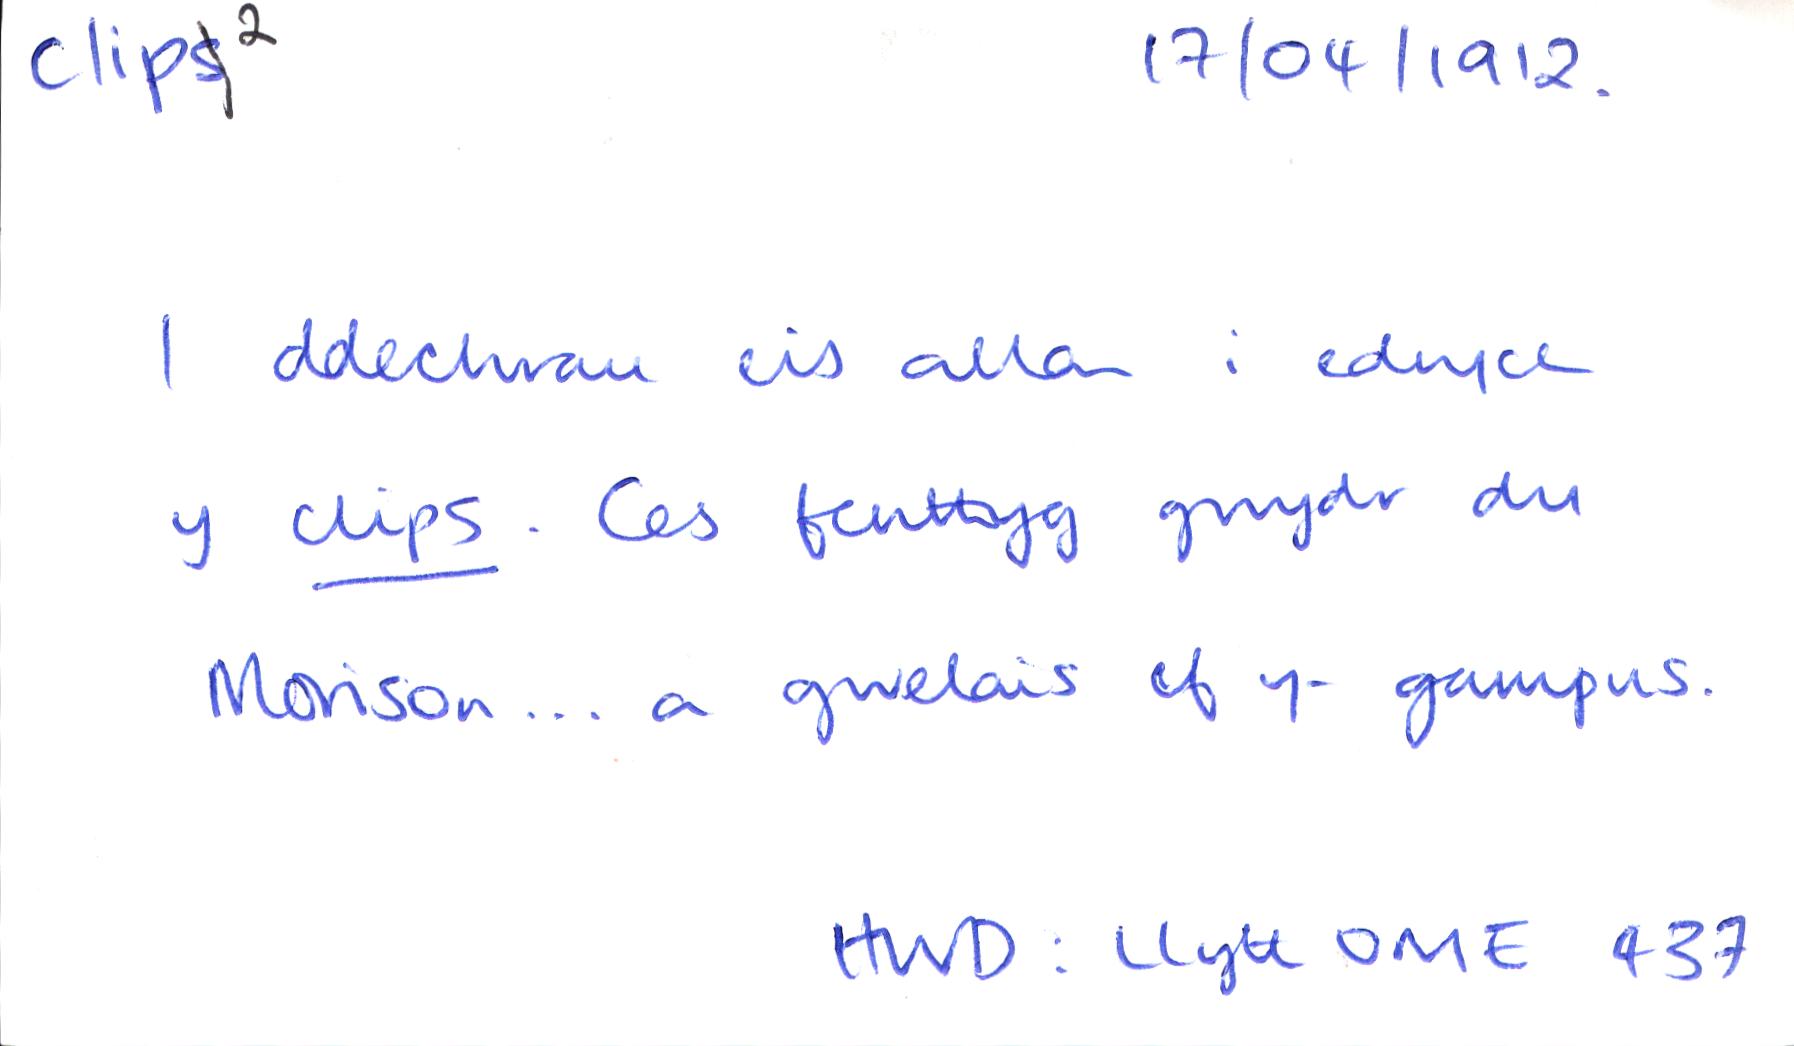 clips² 17/04/1912.
I ddechrau eis allan i edrych
y clips. Ces fenthyg gwydr du
Morison... a gwelais ef yn gampus.
HWD: LlythOME 437